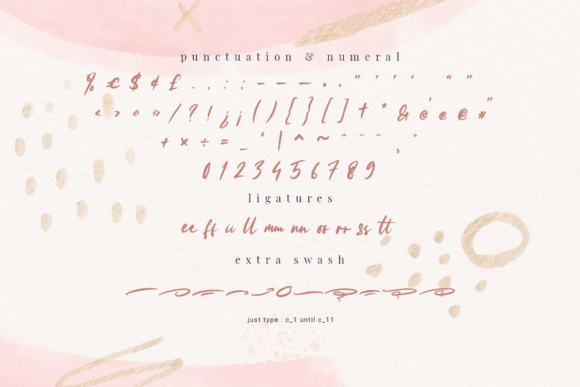 punctuation & numeral
% € $ ¢ £ . , : ; - – — • . . " ' ' ‘ “ ”
‹ › « » / ? ! ¿ ¡ ( ) { } [ ] † * &
+ × ÷ = _ ' | ^ ~
0 1 2 3 4 5 6 7 8 9
ligatures
ee ff ii ll mm nn oo rr ss tt
extra swash
just type : c_1 until c_11